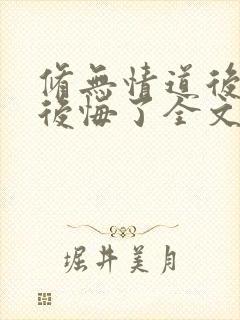 脩無情道後
後悔了全文
堀井美月